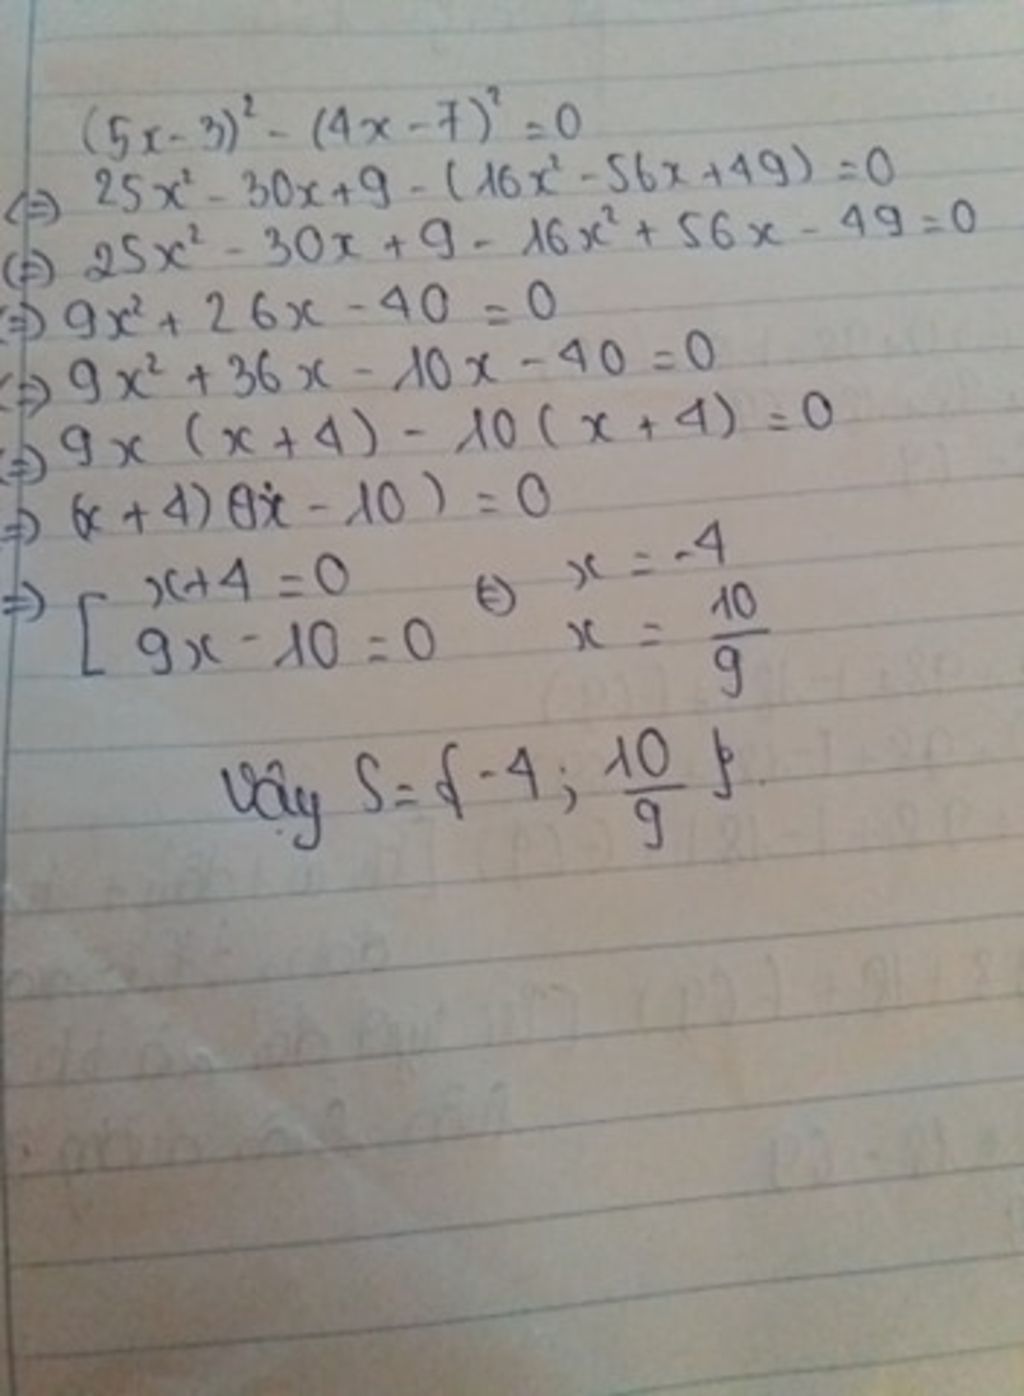 (5x-3)² - (4x-7)² = 0
(=) 25x² - 30x + 9 - (16x² - 56x + 49) = 0
(=) 25x² - 30x + 9 - 16x² + 56x - 49 = 0
(=) 9x² + 26x - 40 = 0
(=) 9x² + 36x - 10x - 40 = 0
(=) 9x (x + 4) - 10 (x + 4) = 0
(=) (x + 4) (9x - 10) = 0
(=) [ x+4 = 0 (=) x = -4
9x - 10 = 0 x = 10/9
Vậy S = { -4 ; 10/9 }.